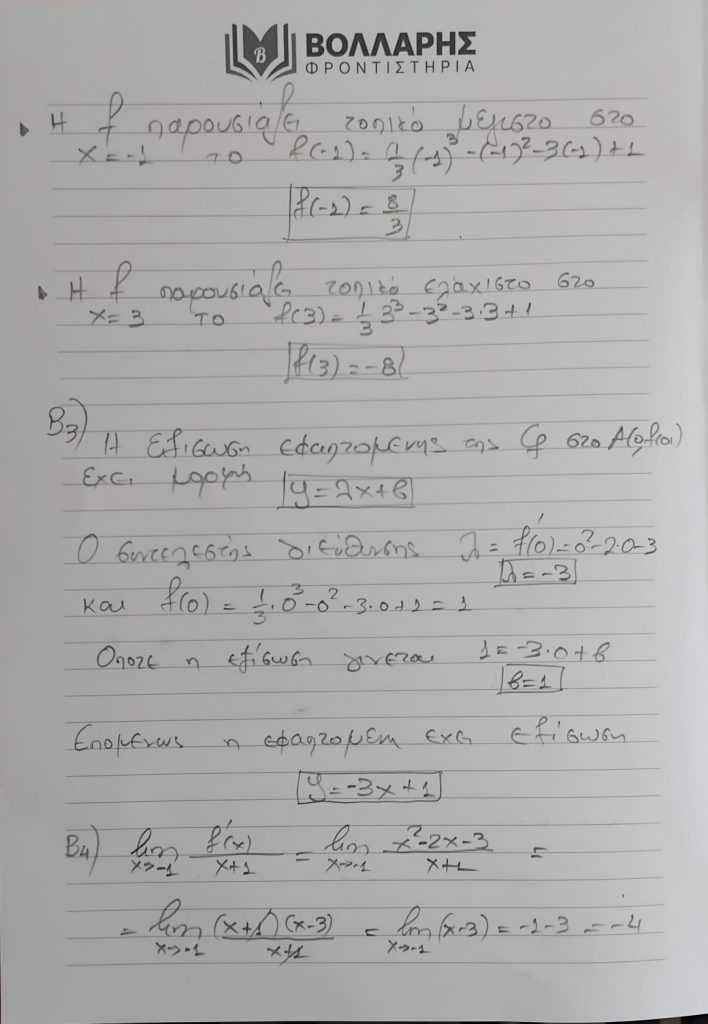 ΒΟΛΛΑΡΗΣ
ΦΡΟΝΤΙΣΤΗΡΙΑ
Η f παρουσιάζει τοπικό μέγιστο στο
x = -1 το f(-1) = 1/3 (-1)³ - (-1)² - 3(-1) + 1
f(-1) = 8/3
Η f παρουσιάζει τοπικό ελάχιστο στο
x = 3 το f(3) = 1/3 3³ - 3² - 3·3 + 1
f(3) = -8
Β3) Η εξίσωση εφαπτομένης της Cf στο A(0,f(0))
έχει μορφή y = λx + β
Ο συντελεστής διεύθυνσης λ = f'(0) = 0² - 2·0 - 3
λ = -3
και f(0) = 1/3·0³ - 0² - 3·0 + 1 = 1
Οποτε η εξίσωση γινεται 1 = -3·0 + β
β = 1
Επομενως η εφαπτομενη εχει εξίσωση
y = -3x + 1
Β4) lim x→-1 f'(x)/(x+1) = lim x→-1 (x²-2x-3)/(x+1) =
= lim x→-1 (x+1)(x-3)/(x+1) = lim x→-1 (x-3) = -1-3 = -4